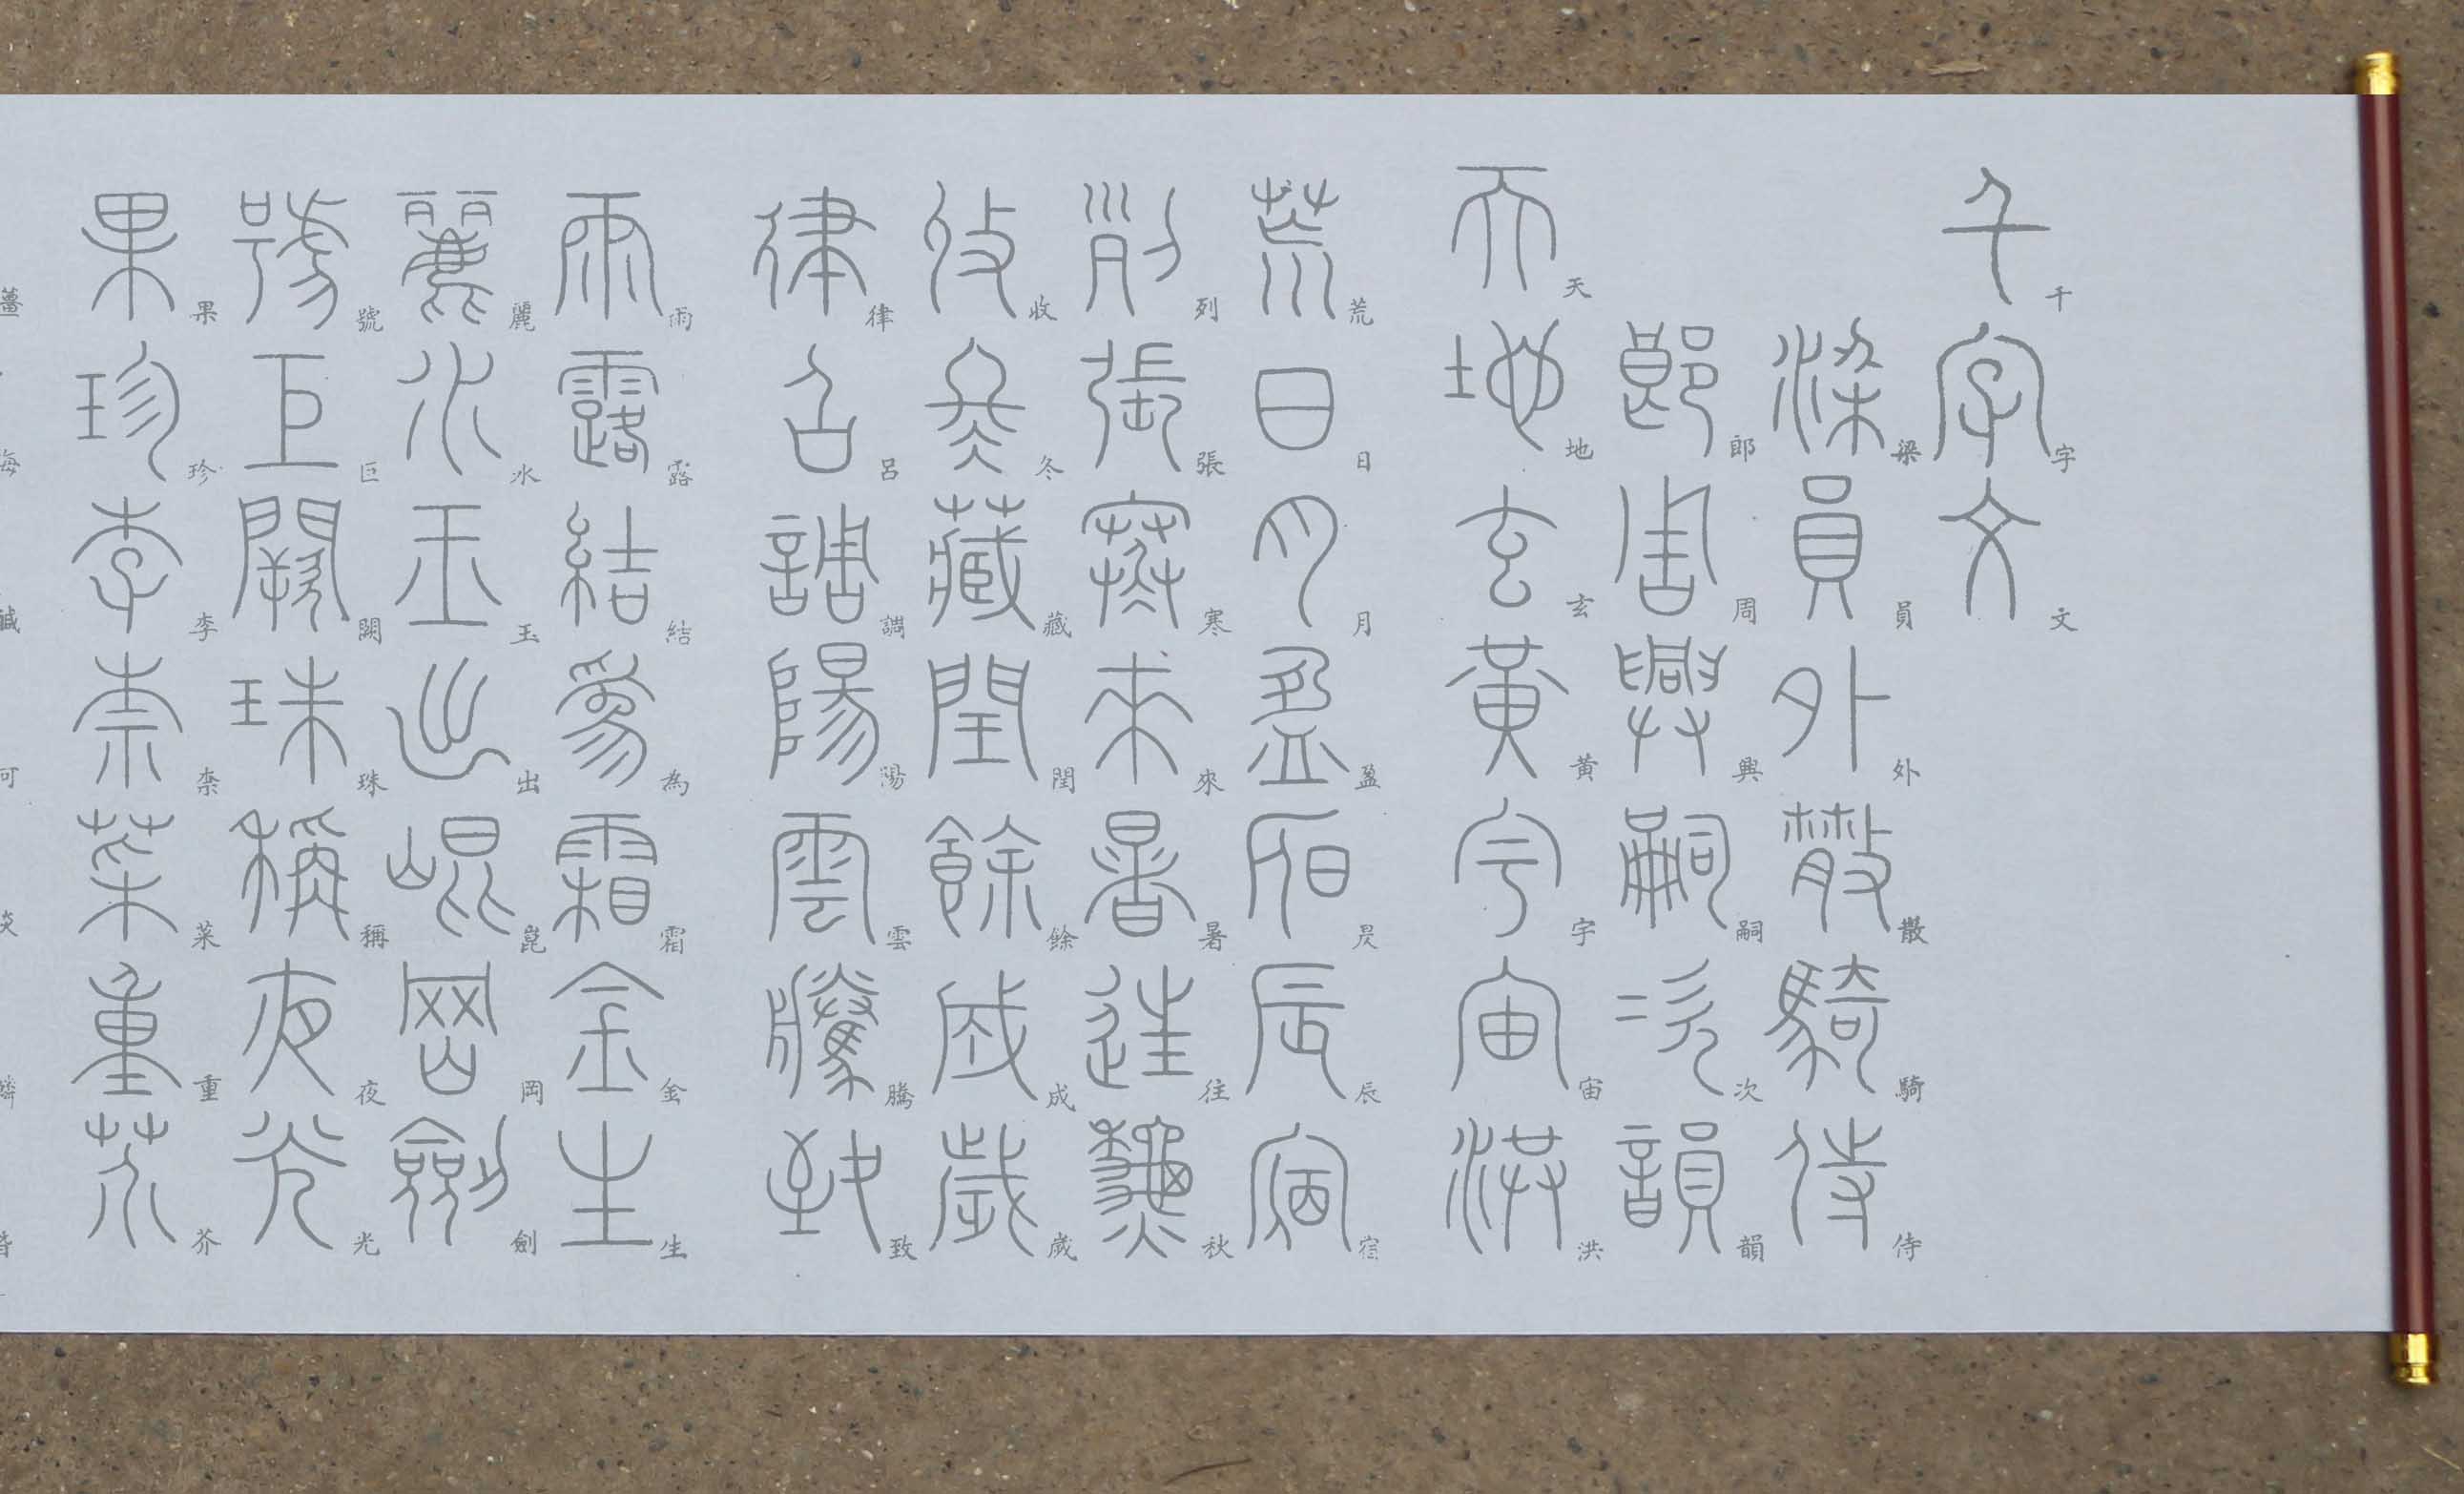 千字文
梁員外散騎侍
郎周興嗣次韻
天地玄黃宇宙洪
荒日月盈昃辰宿
列張寒來暑往秋
收冬藏閏餘成歲
律呂調陽雲騰致
雨露結為霜金生
麗水玉出崑岡劍
號巨闕珠稱夜光
果珍李柰菜重芥